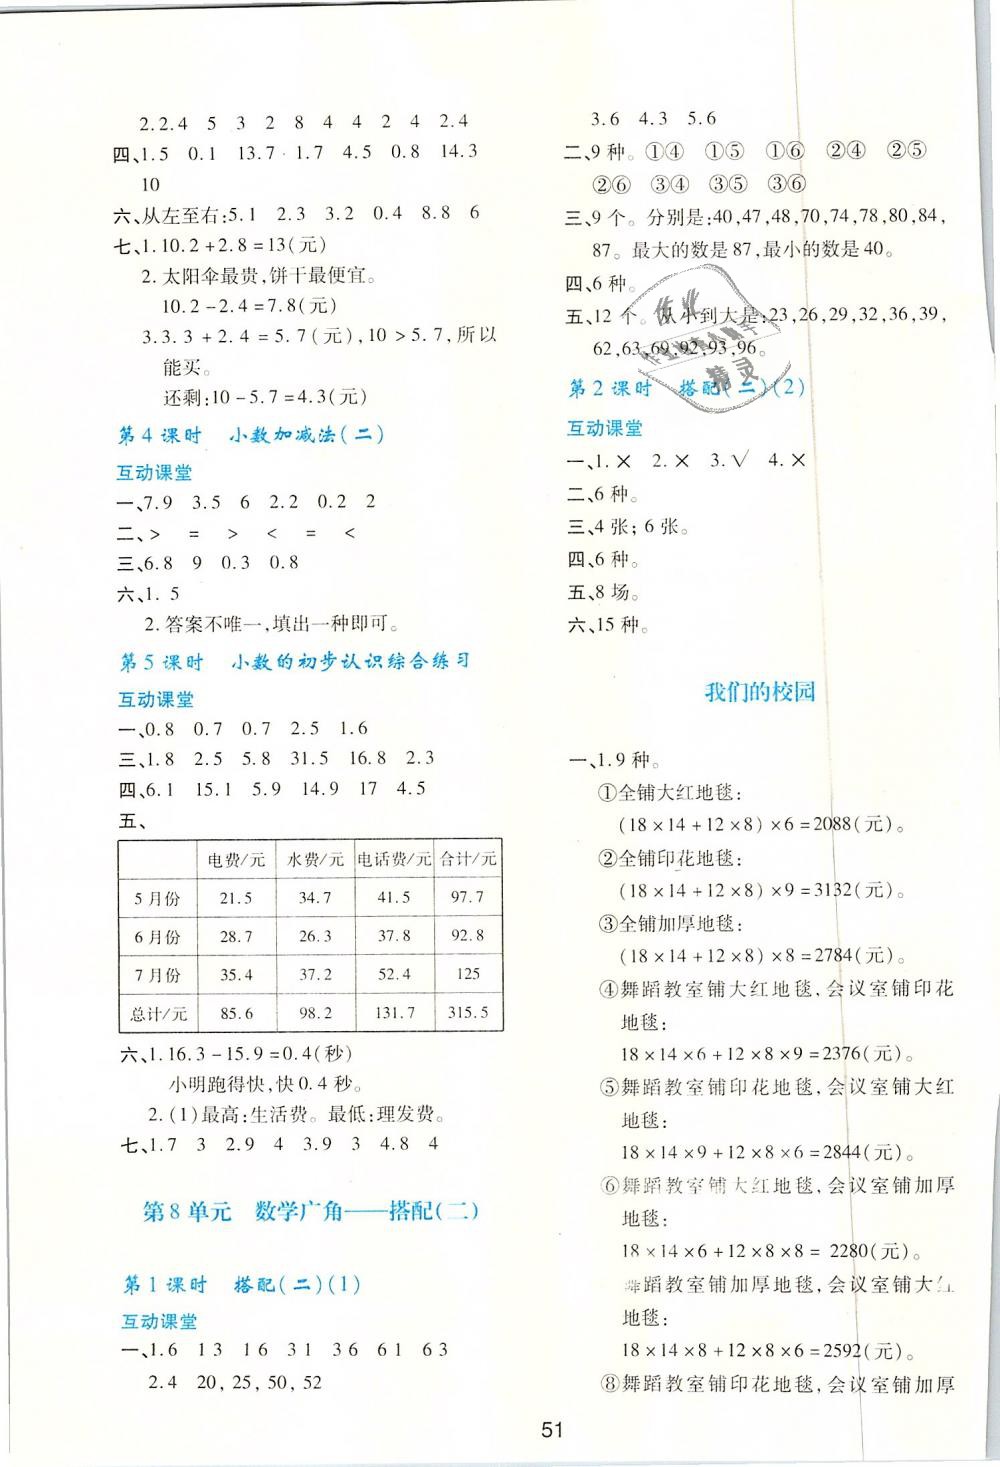 2.2.4 5 3 2 8 4 4 2 4 2.4
四、1.5 0.1 13.7 1.7 4.5 0.8 14.3
10
六、从左至右:5.1 2.3 3.2 0.4 8.8 6
七、1.10.2+2.8=13(元)
2.太阳伞最贵,饼干最便宜。
10.2-2.4=7.8(元)
3.3.3+2.4=5.7(元),10>5.7,所以
能买。
还剩:10-5.7=4.3(元)
第4课时 小数加减法(二)
互动课堂
一、7.9 3.5 6 2.2 0.2 2
二、> = > < = <
三、6.8 9 0.3 0.8
六、1. 5
2.答案不唯一,填出一种即可。
第5课时 小数的初步认识综合练习
互动课堂
一、0.8 0.7 0.7 2.5 1.6
三、1.8 2.5 5.8 31.5 16.8 2.3
四、6.1 15.1 5.9 14.9 17 4.5
五、
电费/元 水费/元 电话费/元 合计/元
5月份 21.5 34.7 41.5 97.7
6月份 28.7 26.3 37.8 92.8
7月份 35.4 37.2 52.4 125
总计/元 85.6 98.2 131.7 315.5
六、1.16.3-15.9=0.4(秒)
小明跑得快,快0.4秒。
2.(1)最高:生活费。最低:理发费。
七、1.7 3 2.9 4 3.9 3 4.8 4
第8单元 数学广角——搭配(二)
第1课时 搭配(二)(1)
互动课堂
一、1.6 13 16 31 36 61 63
2.4 20,25,50,52
3.6 4.3 5.6
二、9种。①④ ①⑤ ①⑥ ②④ ②⑤
②⑥ ③④ ③⑤ ③⑥
三、9个。分别是:40,47,48,70,74,78,80,84,
87。最大的数是87,最小的数是40。
四、6种。
五、12个。从小到大是:23,26,29,32,36,39,
62,63,69,92,93,96。
作业
精灵
第2课时 搭配(二)(2)
互动课堂
一、1.× 2.× 3.√ 4.×
二、6种。
三、4张;6张。
四、6种。
五、8场。
六、15种。
我们的校园
一、1.9种。
①全铺大红地毯:
(18×14+12×8)×6=2088(元)。
②全铺印花地毯:
(18×14+12×8)×9=3132(元)。
③全铺加厚地毯:
(18×14+12×8)×8=2784(元)。
④舞蹈教室铺大红地毯,会议室铺印花
地毯:
18×14×6+12×8×9=2376(元)。
⑤舞蹈教室铺印花地毯,会议室铺大红
地毯:
18×14×9+12×8×6=2844(元)。
⑥舞蹈教室铺大红地毯,会议室铺加厚
地毯:
18×14×6+12×8×8=2280(元)。
舞蹈教室铺加厚地毯,会议室铺大红
地毯:
18×14×8+12×8×6=2592(元)。
⑧舞蹈教室铺印花地毯,会议室铺加厚
51